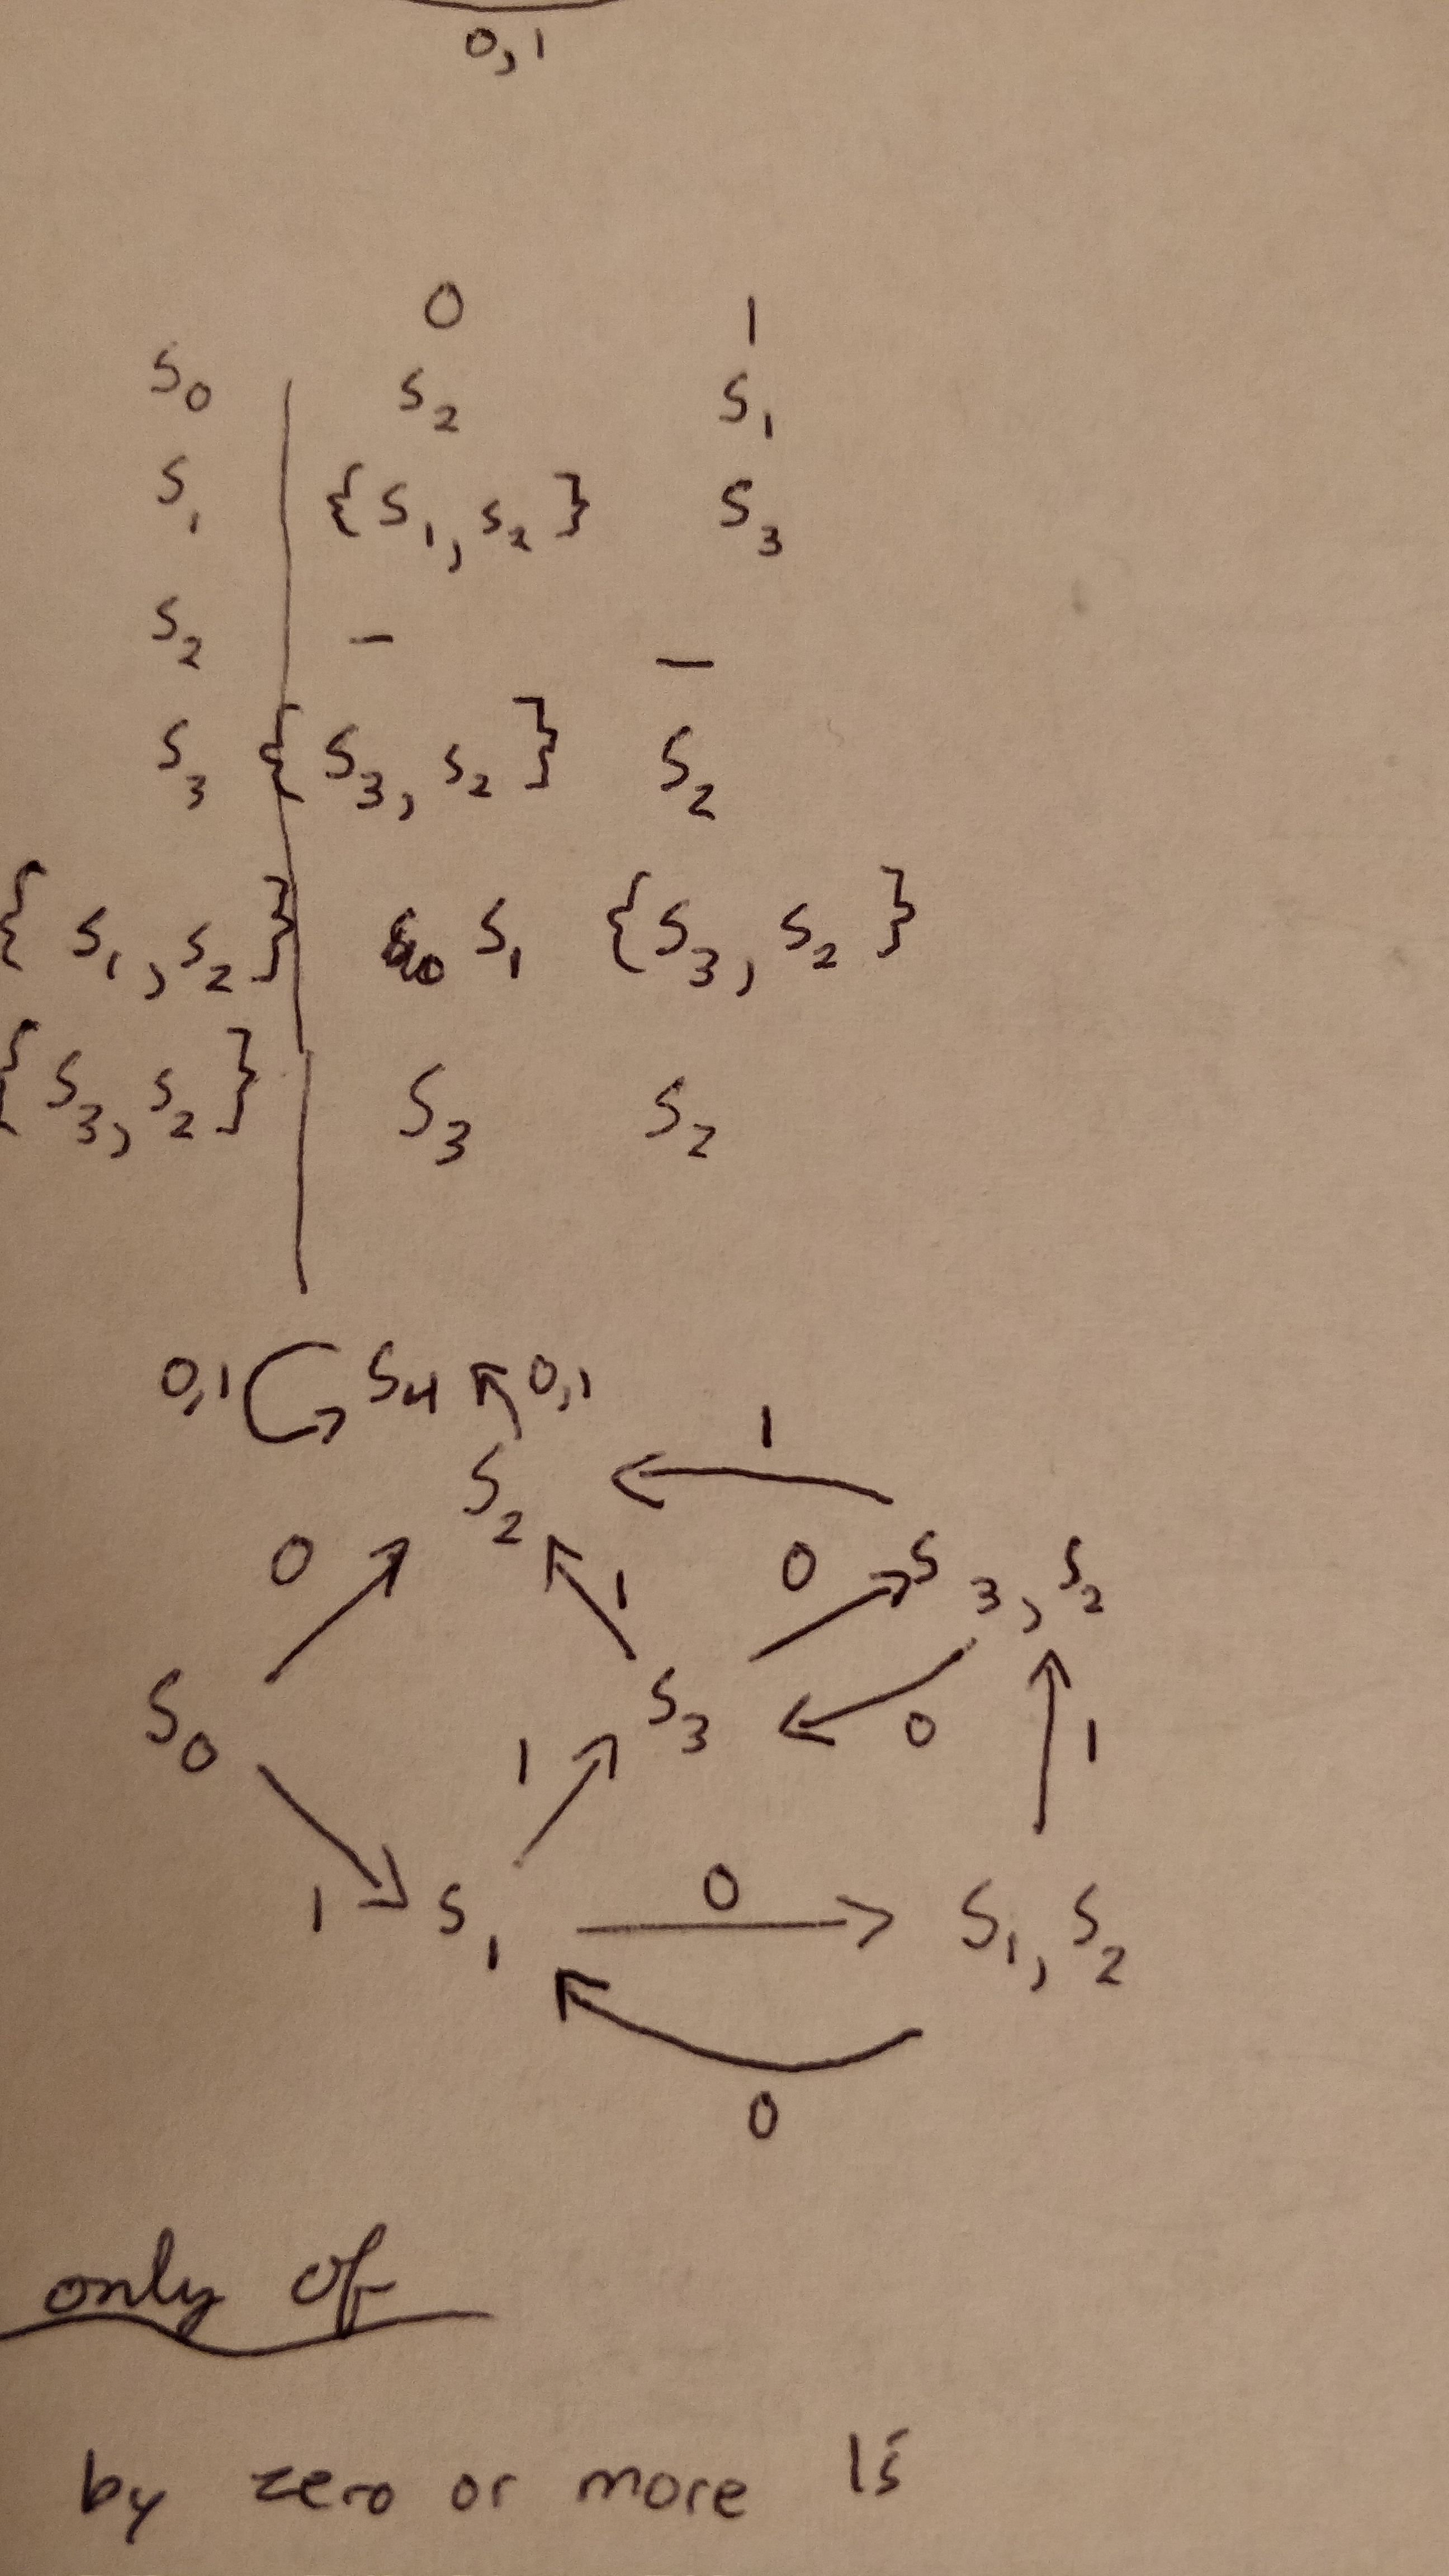 0,1
0 1
S0 S2 S1
S1 {S1,S2} S3
S2 – –
S3 {S3,S2} S2
{S1,S2} S1 {S3,S2}
{S3,S2} S3 S2
0,1 S4 0,1
1
S2
0 1 0 S3,S2
S0 S3 0 1
1
1 S1 0 S1,S2
0
only of
by zero or more 1s